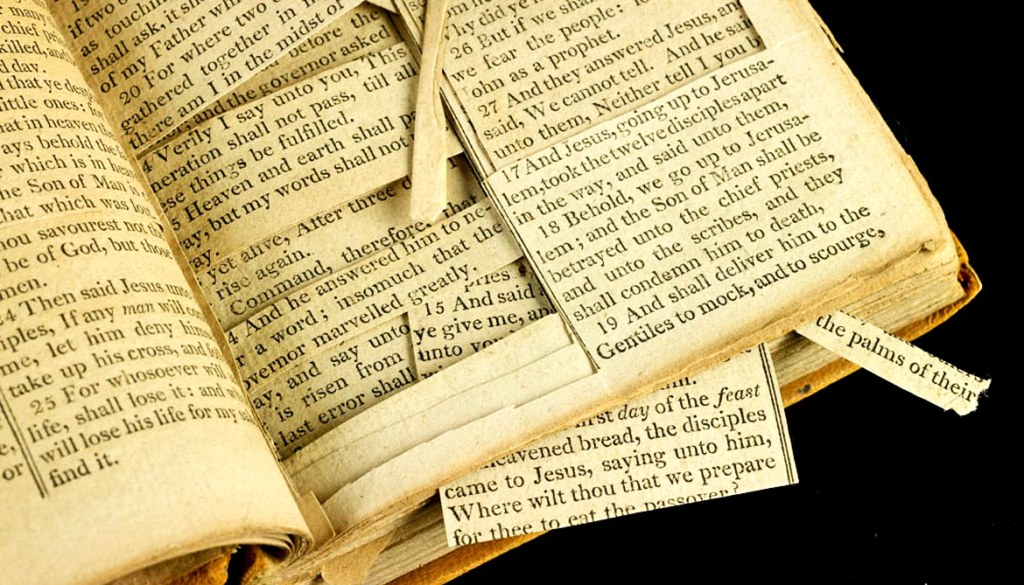 many
if two
chief p
killed, an
d day.
that ye de
little ones;
hat in heaven the
ays behold the
which is in hea
he Son of Man is
that which was los
hou savourest not
be of God, but those
men.
24 Then said Jesus un
iples, If any man will co
me, let him deny him
take up his cross, and
25 For whosoever will
life, shall lose it: and
will lose his life for my
find it.
as touching
shall ask, it sh
of my Father whi
20 For where two
gathered together in
there am I in the midst of
before the
and the governor asked
Verily I say unto you, This
neration shall not pass, till all
se things be fulfilled.
5 Heaven and earth shall pa
ay, but my words shall not
yet alive, After three d
rise again.
Command, therefore, that
4 And he answered him to ne-
r a word; insomuch that the
overnor marvelled greatly.
ay, and say unto
is risen from
last error shall
priest
15 And said
ye give me, an
unto you
why did ye
26 But if we sha
we fear the people:
ohn as a prophet.
27 And they answered Jesus, and
said, We cannot tell. And he sa
unto them, Neither tell I you
17 And Jesus, going up to Jerusa-
lem, took the twelve disciples apart
in the way, and said unto them,
18 Behold, we go up to Jerusa-
lem; and the Son of Man shall be
betrayed unto the chief priests,
and unto the scribes, and they
shall condemn him to death,
19 And shall deliver him to the
Gentiles to mock, and to scourge,
the palms of their
irst day of the feast
unleavened bread, the disciples
came to Jesus, saying unto him,
Where wilt thou that we prepare
for thee to eat the passover?